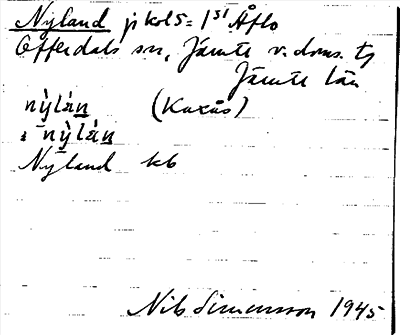 Nyland jkols= 1st Åflo
Offerdals sn, Jämte v. doms. tg
Jämte län
nỳlán (Kaxås)
ı nỳlán
Nyland kb
Nils Simonsson 1945